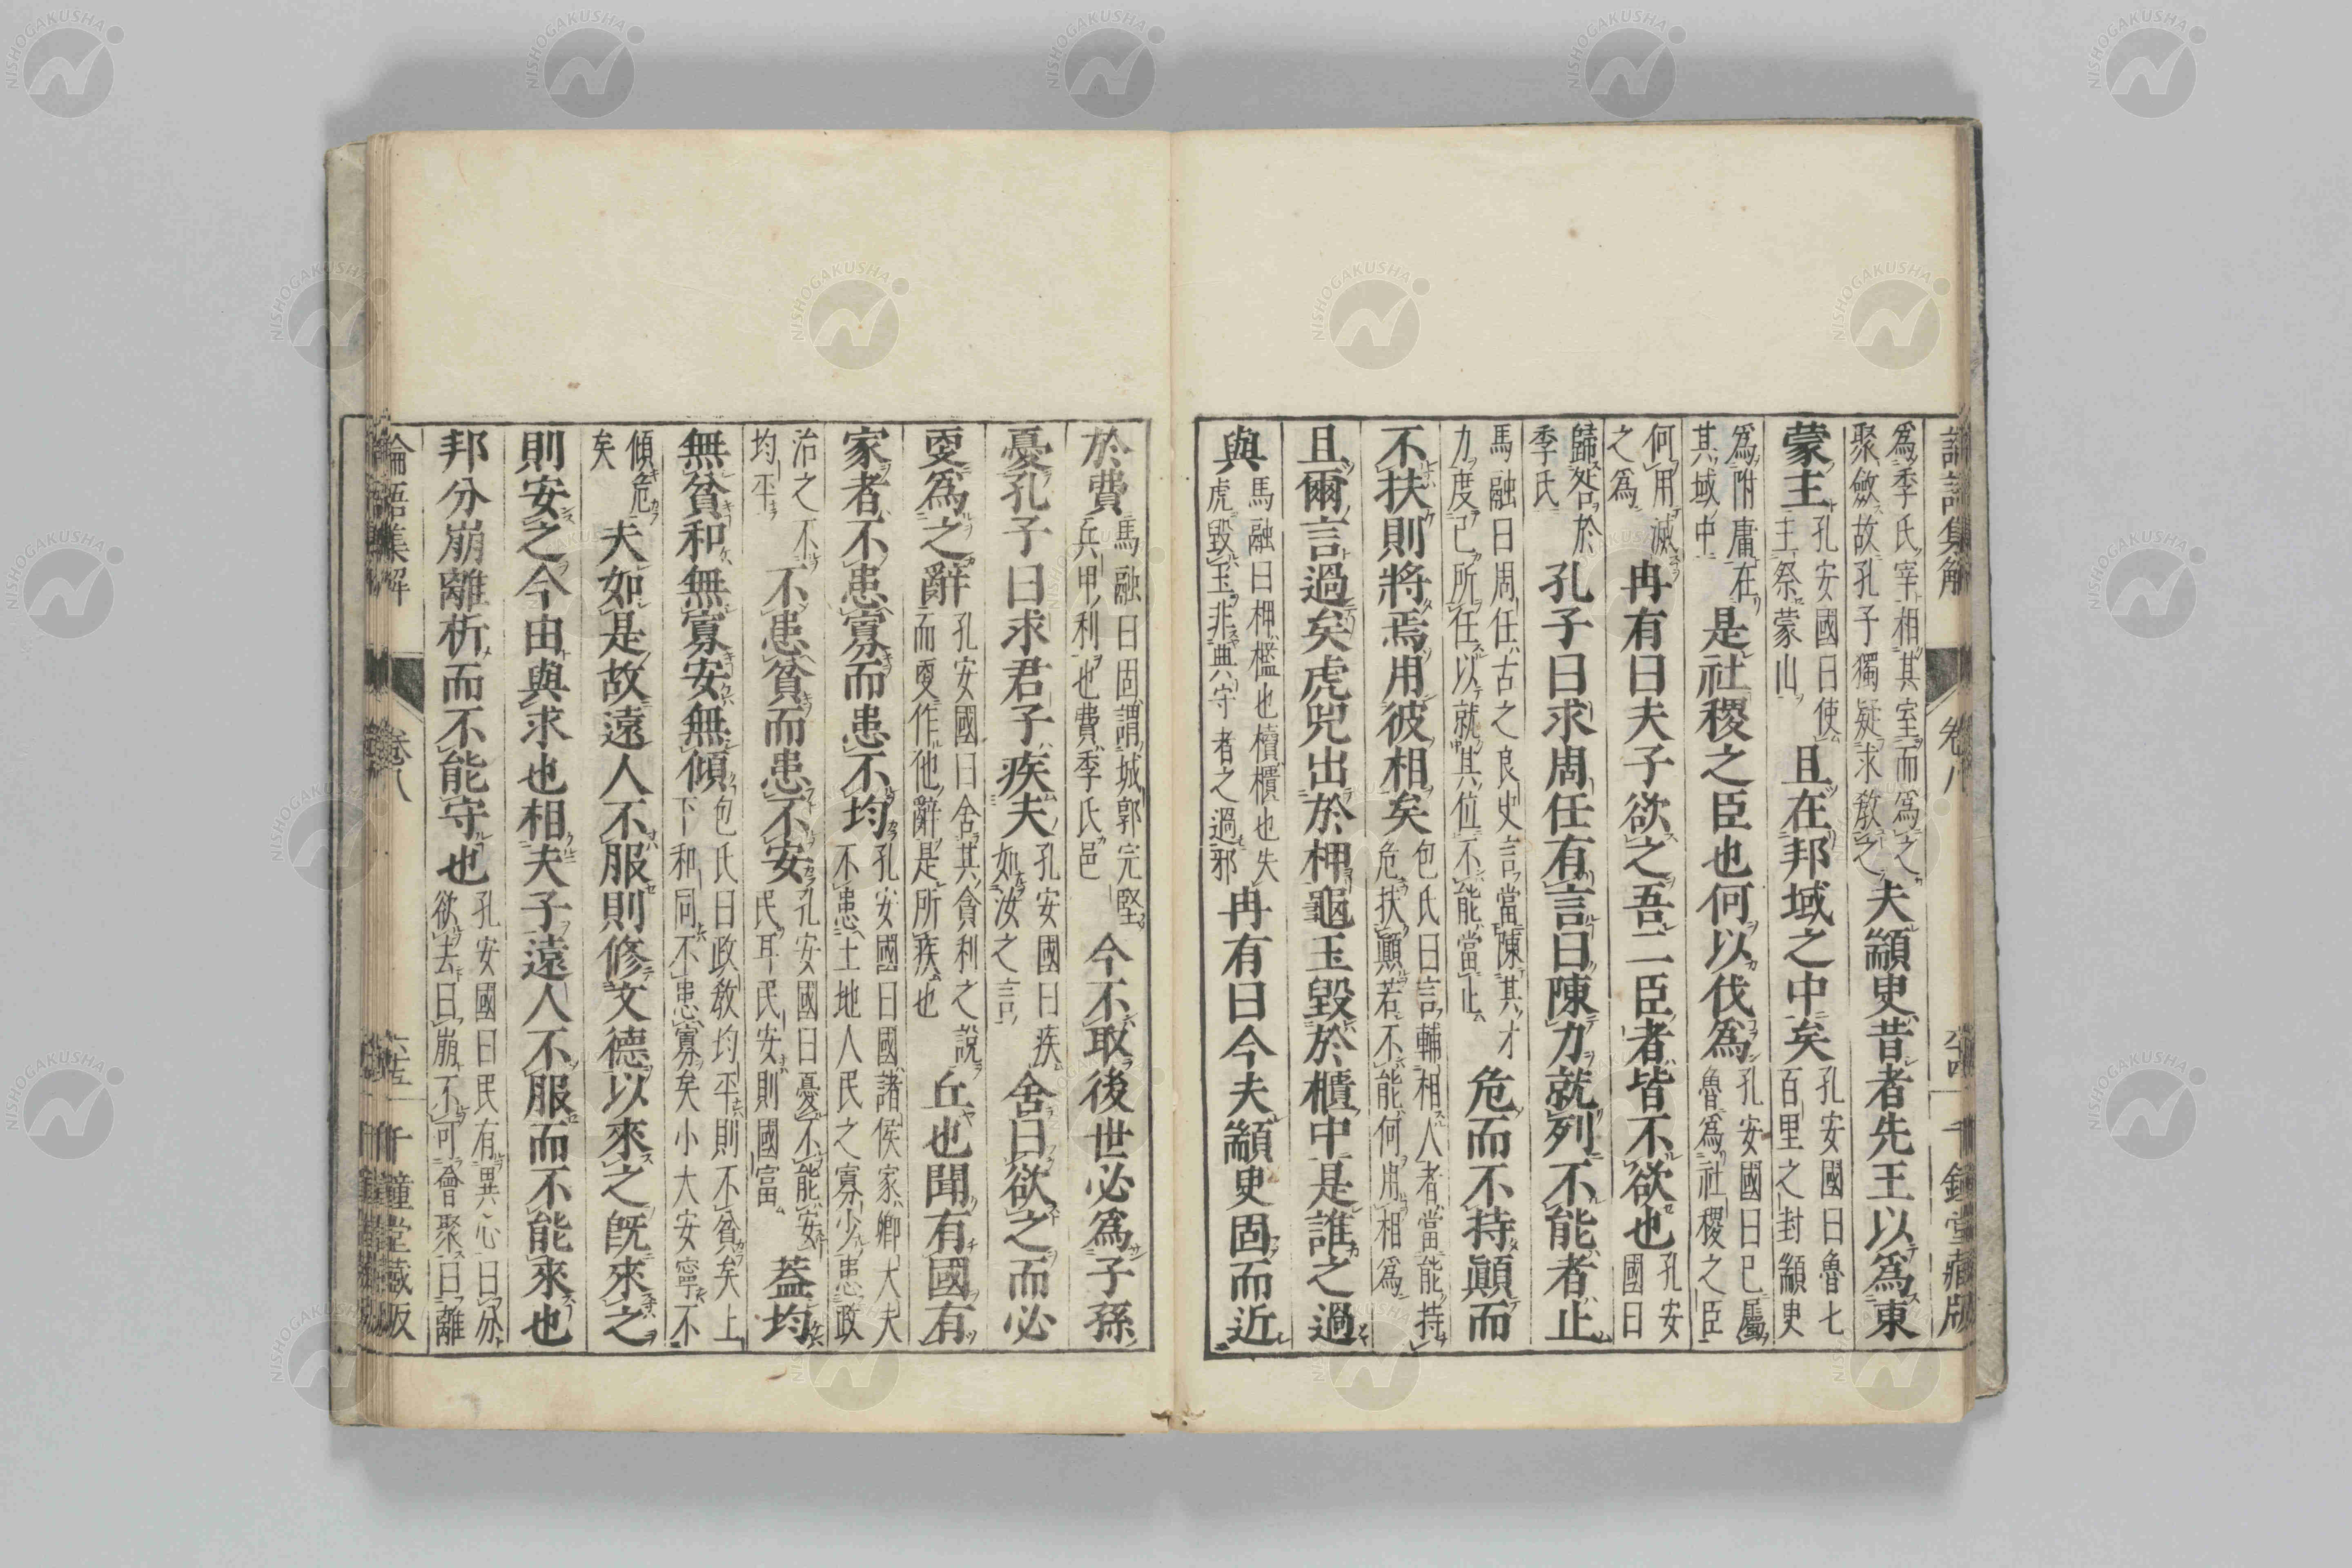 論語集解 卷八 六十四 千鐘堂藏版
爲季氏宰相其室而爲之聚斂故孔子獨疑求教之夫顓臾昔者先王以爲東
蒙主孔安國曰使主祭蒙山且在邦域之中矣孔安國曰魯七百里之封顓臾
爲附庸在其域中是社稷之臣也何以伐爲孔安國曰已屬魯爲社稷之臣
何用滅之爲冉有曰夫子欲之吾二臣者皆不欲也孔安國曰
歸咎於季氏孔子曰求周任有言曰陳力就列不能者止
馬融曰周任古之良史言當陳其才力度己所任以就其位不能當止危而不持顚而
不扶則將焉用彼相矣包氏曰言輔相人者當能持危扶顚若不能何用相爲
且爾言過矣虎兕出於柙龜玉毀於櫃中是誰之過
與馬融曰柙檻也櫝櫃也失虎毀玉非典守者之過邪冉有曰今夫顓臾固而近
於費馬融曰固謂城郭完堅兵甲利也費季氏邑今不取後世必爲子孫
憂孔子曰求君子疾夫孔安國曰疾如汝之言舍曰欲之而必
更爲之辭孔安國曰舍其貪利之說而更作他辭是所疾也丘也聞有國有
家者不患寡而患不均孔安國曰國諸侯家卿大夫不患土地人民之寡少患政
治之不均平不患貧而患不安孔安國曰憂不能安民耳民安則國富蓋均
無貧和無寡安無傾包氏曰政教均平則不貧矣上下和同不患寡矣小大安寧不
傾危矣夫如是故遠人不服則修文德以來之既來之
則安之今由與求也相夫子遠人不服而不能來也
邦分崩離析而不能守也孔安國曰民有異心曰分欲去曰崩不可會聚曰離
論語集解 卷八 六十五 千鐘堂藏版
NISHOGAKUSHA